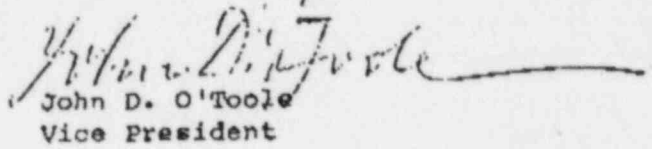 John D. O'Toole
John D. O'Toole
Vice President